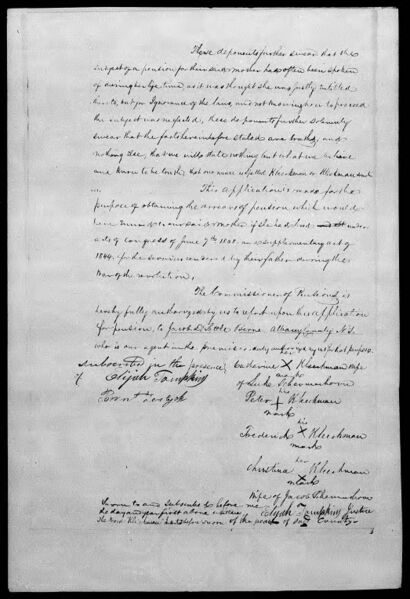 These deponents further swear that the
subject of a pension for their said mother has often been spoken
of during her life time, as it was thought she was justly entitled
thereto, but for Ignorance of the laws, and not knowing how to proceed
the subject was neglected, these deponents further solemnly
swear that the facts herein before stated are truths, and
nothing else, that we will state nothing but what we believe
and know to be truth, that our name is spelled Kleeckman or
This Application is made for the
purpose of obtaining the arrears of pension which would
have our said mother if she had under
acts of Congress of June 7th and supplementary act of
1844 for the services rendered by their father during the
War of the revolution.
The Commissioner of Pensions is
hereby fully authorized by us to report upon this application
for pension, to Jacob D. Settle Berne Albany County N.Y.
who is our agent in the premises duly authorized by us for that purpose.
Subscribed in the presence
of
Elijah Tompkins
her
Catherine X Kleeckman wife
mark
of Luke Schermerhorn
his
Peter X Kleeckman
mark
his
Frederick X Kleeckman
mark
her
Christina X Kleeckman
mark
Wife of Jacob Schermerhorn
Sworn to and Subscribed to before me
the day and year first above written
Elijah Tompkins Justice
of the peace of said County